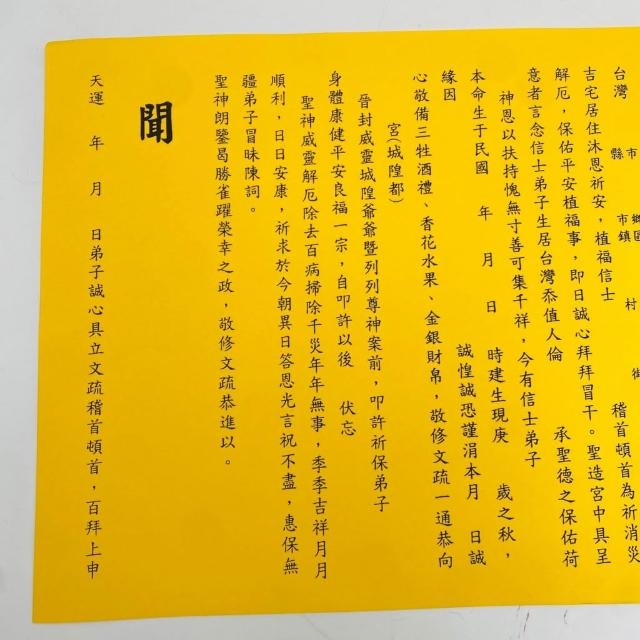 台灣 縣市 市鎮鄉區 村 街
吉宅居住沐恩祈安，植福信士 稽首頓首為祈消災
解厄，保佑平安植福事，即日誠心拜拜冒干。聖造宮中具呈
意者言念信士弟子生居台灣忝值人倫 承聖德之保佑荷
神恩以扶持愧無寸善可集千祥，今有信士弟子
本命生于民國 年 月 日 時建生現庚 歲之秋，
緣因 誠惶誠恐謹涓本月 日誠
心敬備三牲酒禮、香花水果、金銀財帛，敬修文疏一通恭向
宮（城隍都）
晉封威靈城隍爺爺暨列列尊神案前，叩許祈保弟子
身體康健平安良福一宗，自叩許以後 伏忘
聖神威靈解厄除去百病掃除千災年年無事，季季吉祥月月
順利，日日安康，祈求於今朝異日答恩光言祝不盡，惠保無
疆弟子冒昧陳詞。
聖神朗鑒曷勝雀躍榮幸之政，敬修文疏恭進以。
聞
天運 年 月 日弟子誠心具立文疏稽首頓首，百拜上申